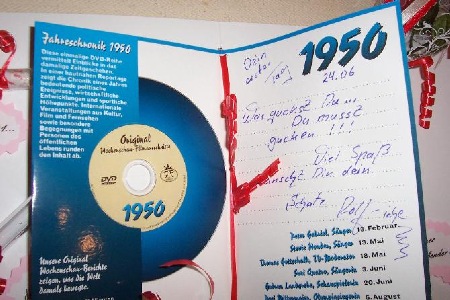 Jahreschronik 1950
Diese einmalige DVD-Reihe
vermittelt Einblicke in das
damalige Zeitgeschehen.
In einer bunten Reportage
zeigt die Chronik eines Jahres
bedeutende politische
Ereignisse, wirtschaftliche
Entwicklungen und sportliche
Höhepunkte. Internationale
Veranstaltungen aus Kultur,
Film und Fernsehen
sowie besondere
Begegnungen mit
Personen des
öffentlichen
Lebens runden
den Inhalt ab.
Original
Wochenschau-Filmausschnitte
DVD
1950
Unsere Original
Wochenschau-Berichte
zeigen, wie die Welt
damals bewegte.
Dein
1950
24.06
Was guckst Du..
Du musst
gucken !!!
Viel Spaß
wünscht Dir dein
Schatz
Peter Gabriel, Sänger 13. Februar
Stevie Wonder, Sänger 13. Mai
Thomas Gottschalk, TV-Moderator 18. Mai
Suzi Quatro, Sängerin 3. Juni
Gudrun Landgrebe, Schauspielerin 20. Juni
5. August